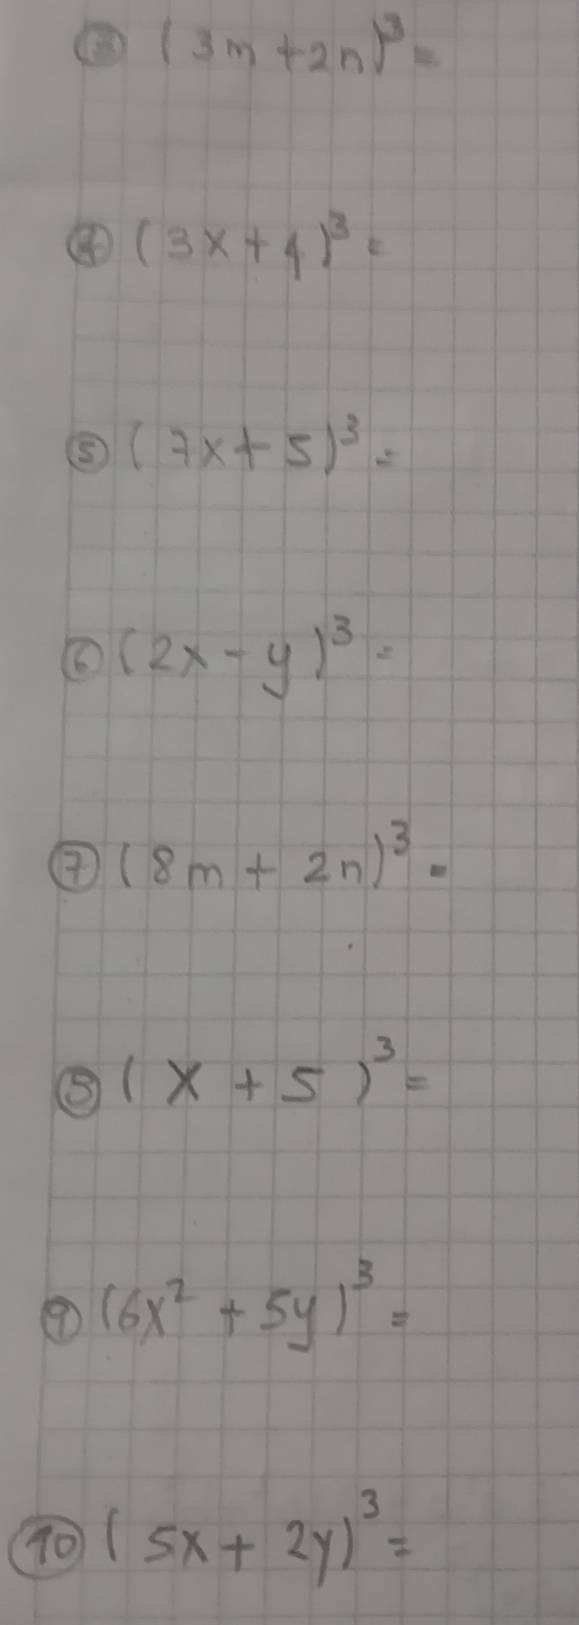 ③ (3m + 2n)³ =
④ (3x + 4)³ =
⑤ (7x + 5)³ =
⑥ (2x - y)³ =
⑦ (8m + 2n)³ =
⑧ (x + 5)³ =
⑨ (6x² + 5y)³ =
⑩ (5x + 2y)³ =